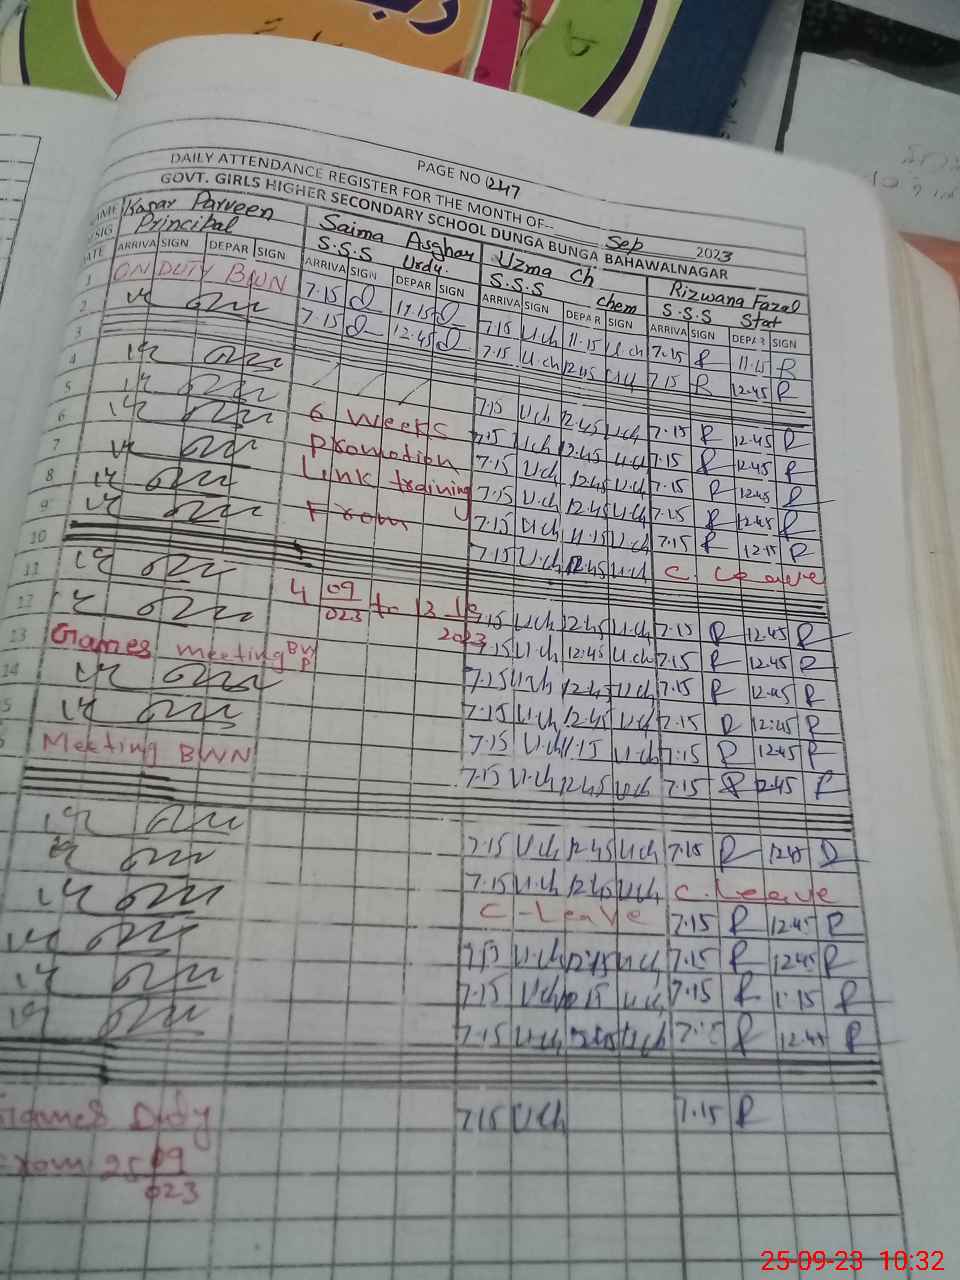 PAGE NO 247
DAILY ATTENDANCE REGISTER FOR THE MONTH OF-- Sep 2023
GOVT. GIRLS HIGHER SECONDARY SCHOOL DUNGA BUNGA BAHAWALNAGAR
Kosar Parveen Saima Asghar Uzma Ch Rizwana Fazal
Principal S.S.S Urdu. S.S.S chem S.S.S Stat
ARRIVA SIGN DEPAR SIGN ARRIVA SIGN DEPAR SIGN ARRIVA SIGN DEPAR SIGN ARRIVA SIGN DEPAR SIGN
1 ON DUTY BWN 7.15 11.15 7.15 U.ch 11.15 U.ch 7.15 R 11.15 R
2 7.15 12.45 7.15 U.ch 12.45 7.15 R 12.45 R
3
4 7.15 U.ch 12.45 U.ch 7.15 R 12.45 R
5 6 Weeks 7.15 U.ch 12.45 U.ch 7.15 R 12.45 R
6 Promotion 7.15 U.ch 12.45 U.ch 7.15 R 12.45 R
7 Link training 7.15 U.ch 12.45 U.ch 7.15 R 12.45 R
8 From 7.15 U.ch 11.15 U.ch 7.15 R 12.15 R
9 7.15 U.ch 12.45 U.ch C. Leave
10
11 4 09 023 to 13 2023 7.15 U.ch 12.45 U.ch 7.15 R 12.45 R
12 7.15 U.ch 12.45 U.ch 7.15 R 12.45 R
13 Games meeting BWP 7.15 U.ch 12.45 U.ch 7.15 R 12.45 R
14 7.15 U.ch 12.45 U.ch 7.15 R 12.45 R
7.15 U.ch 11.15 U.ch 7.15 R 12.45 R
Meeting BWN 7.15 U.ch 12.45 U.ch 7.15 R 12.45 R
7.15 U.ch 12.45 U.ch 7.15 R 12.45
7.15 U.ch 12.45 U.ch C. Leave
C-Leave 7.15 R 12.45 R
U.ch 12.15 U.ch 7.15 R 12.45 R
7.15 U.ch U.ch 7.15 R 1.15 R
7.15 U.ch 12.45 U.ch R 12.45 R
Games Duty 7.15 U.ch 7.15 R
From 25 09 023
25-09-23 10:32